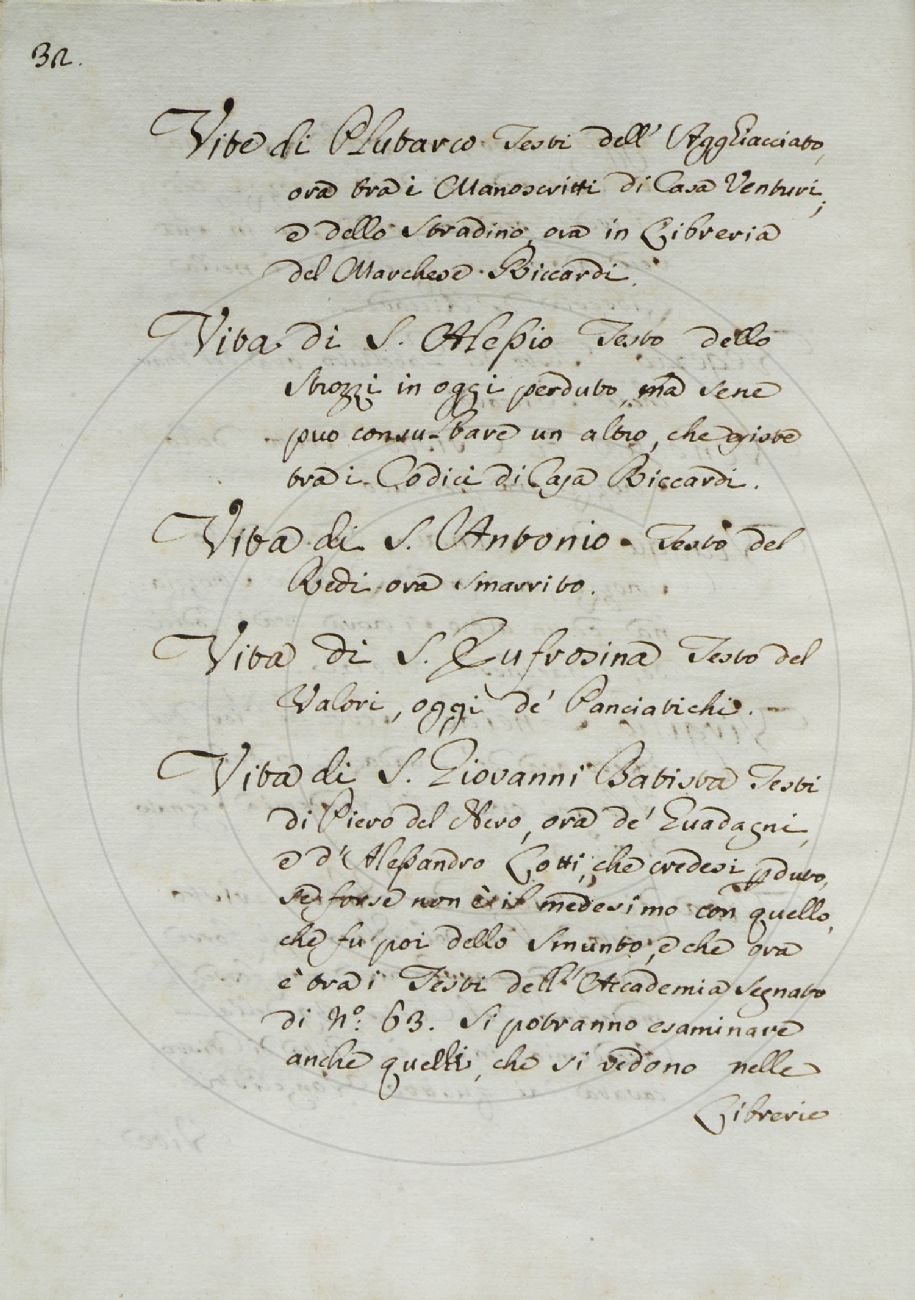 32.
Vite di Plutarco Testi dell' Agghiacciato,
ora tra i Manoscritti di Casa Venturi;
e dello Stradino, ora in Libreria
del Marchese Riccardi.
Vita di S. Alessio Testo dello
Strozzi in oggi perduto, ma sene
può consultare un altro, che esiste
tra i Codici di Casa Riccardi.
Vita di S. Antonio Testo del
Redi ora smarrito.
Vita di S. Eufrosina Testo del
Valori, oggi de' Panciatichi.
Vita di S. Giovanni Batista Testi
di Piero del Nero, ora de' Guadagni,
e d'Alessandro Gotti, che credesi pduto,
se forse non è il medesimo con quello,
che fu poi dello Smunto, e che ora
è tra i Testi dell'Accademia segnato
di N.º 63. Si potranno esaminare
anche quelli, che si vedono nelle
Librerie